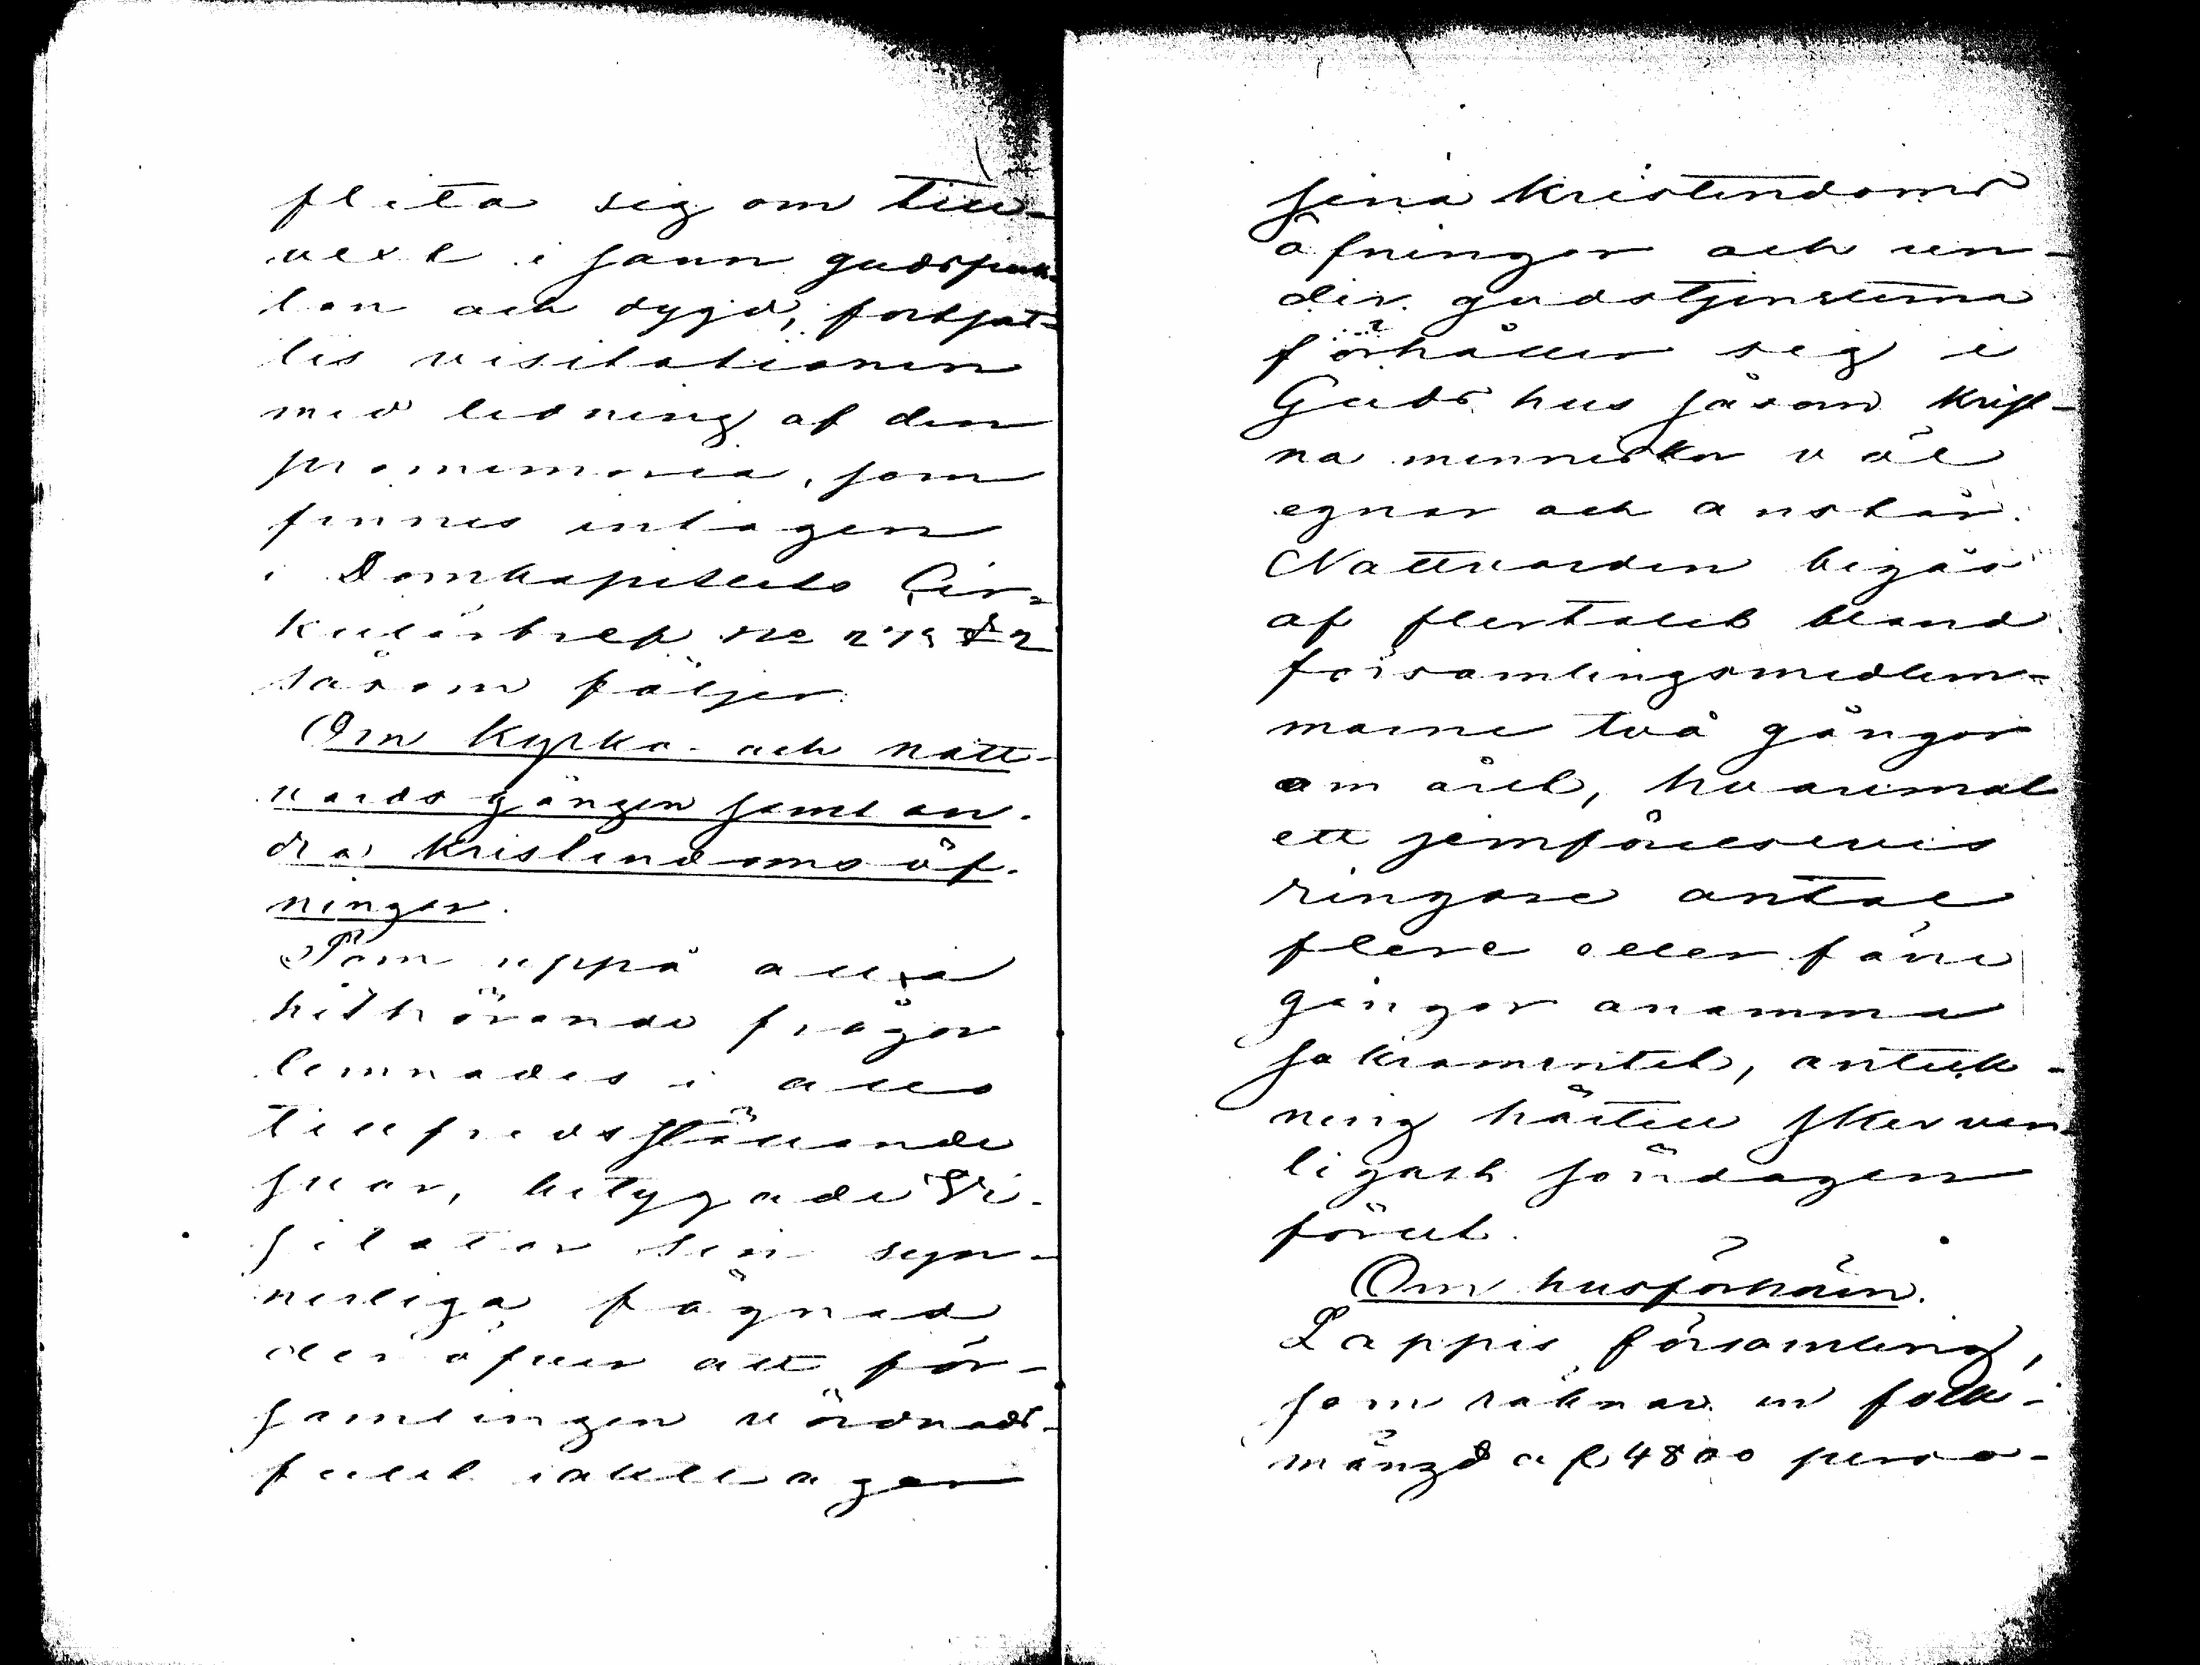 flita sig om till-
vext i sann gudsfruk-
tan och dygd, fortsat-
tes visitationen
med ledning af den
promemoria, som
finnes intagen
i Domkapitlets Cir-
kulärbref No
såsom följer.
Om kyrko- och natt-
vards gången samt an-
dra kristendoms öf-
ningar.
Som uppå alla
hithörande frågor
lemnades i allo
tillfredsställande
svar, betygade Vi-
sitator sin syn-
nerliga fägnad
deröfver att för-
samlingen vördnads-
fullt iakttager
sina kristendoms
öfningar och un-
der gudstjensterna
förhåller sig i
Guds hus såsom krist-
na menniskor väl
egnar och anstår.
Nattvarden begås
af flertalet bland
församlingsmedlem-
marne två gånger
om året, hvaremot
ett jemförelsevis
ringare antal
flere eller färre
gånger anamma
sakramentet, anteck-
ning härtill sker van-
ligast söndagen
förut.
Om husförhören.
Lappis församling,
som räknar en folk-
mängd af 4800 perso-